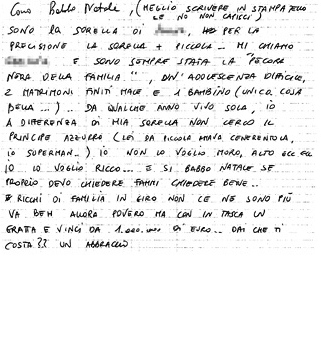 Caro Babbo Natale, (MEGLIO SCRIVERE IN STAMPATELLO
SE NO NON CAPISCI)
SONO LA SORELLA DI PER LA
PRECISIONE LA SORELLA + PICCOLA.. MI CHIAMO
E SONO SEMPRE STATA LA "PECORA
NERA DELLA FAMIGLIA", UN'ADOLESCENZA DIFFICILE,
2 MATRIMONI FINITI MALE E 1 BAMBINO (UNICA COSA
BELLA...).. DA QUALCHE ANNO VIVO SOLA, IO
A DIFFERENZA DI MIA SORELLA NON CERCO IL
PRINCIPE AZZURRO (LEI DA PICCOLA AMAVA CENERENTOLA,
IO SUPERMAN..) IO NON LO VOGLIO MORO, ALTO ECC ECC
IO LO VOGLIO RICCO... E SI BABBO NATALE SE
PROPRIO DEVO CHIEDERE FAMMI CHIEDERE BENE..
RICCHI DI FAMIGLIA IN GIRO NON CE NE SONO PIÙ
VA BEH ALLORA POVERO MA CON IN TASCA UN
GRATTA E VINCI DA 1.000.000 DI EURO... DAI CHE TI
COSTA?? UN ABBRACCIO